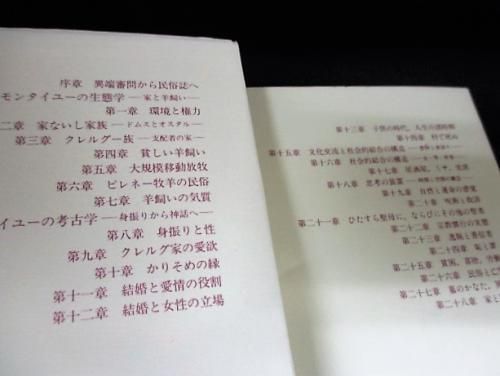 序章　異端審問から民俗誌へ
モンタイユーの生態学 ―家と羊飼い―
第一章　環境と権力
二章　家ないし家族 ―ドムスとオスタル―
第三章　クレルグ一族 ―支配者の家―
第四章　貧しい羊飼い
第五章　大規模移動放牧
第六章　ピレネー牧羊の民俗
第七章　羊飼いの気質
イユーの考古学 ―身振りから神話へ―
第八章　身振りと性
第九章　クレルグ家の愛欲
第十章　かりそめの縁
第十一章　結婚と愛情の役割
第十二章　結婚と女性の立場
第十三章　子供の時代、人生の諸時期
第十四章　村で死ぬ
第十五章　文化交流と社会的結合の構造
第十六章　社会的結合の構造
第十七章　居酒屋、ミサ、交流
第十八章　思考の装置
第十九章　自然と運命の感覚
第二十章　呪術と救済
第二十一章　ひたすら聖母に、ならびにその他の聖者
第二十二章　宗教慣行の実際
第二十三章　逸脱と背信者
第二十四章　恥と罪
第二十五章　貧困、喜捨、労働
第二十六章　民俗と亡
第二十七章　墓のかなた、
第二十八章　家と